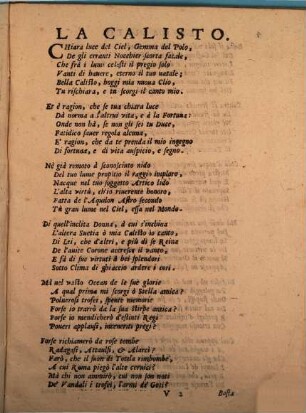 LA CALISTO.
CHiara luce del Ciel, Gemma del Polo,
De gli erranti Nocchier scorta fatale,
Che frà i lumi celesti il pregio solo
Vanti di hauere, eterno il tuo natale;
Bella Calisto, hoggi mia noua Clio,
Tu rischiara, e tu scorgi il canto mio.
Et è ragion, che se tua chiara luce
Dà norma à l'altrui vita, e à la Fortuna:
Onde non hà, se non gli sei tu Duce,
Fatidico saper regola alcuna,
E' ragion, che da te prenda il mio ingegno
Di fortuna, e di vita auspicio, e segno.
Nè già remoto à sconosciuto nido
Del tuo lume propitio il raggio imploro,
Nacque nel tuo soggetto Artico lido
L'alta virtù, ch'io riuerente honoro,
Fatta de l'Aquilon Astro secondo
Tù gran lume nel Ciel, essa nel Mondo.
Di quell'inclita Donna, à cui s'inchina
L'altera Suetia è mia Calisto il canto,
Di Lei, che d'altri, e più di se Reina
De l'auite Corone accresce il vanto,
E fà di sue virtuti à bei splendori
Sotto Clima di ghiaccio ardere i cori.
Mà nel vasto Ocean de le sue glorie
A qual prima mi scorgi ò Stella amica?
Polverosi trofei, spente memorie
Forse io trarrò da la sua stirpe antica?
Forse io mendicherò d'estinti Regi
Poueri applausi, inceneriti pregi?
Forse richiamerò da rose tombe
Radagasi, Attaulfi, & Alarici?
Farò, che il suon di Totila rimbombe,
A cui Roma piegò l'alte ceruici?
Mà chi non ammirò, cui non son noti
De' Vandali i trofei, l'armi de' Goti?
V 2 Basta